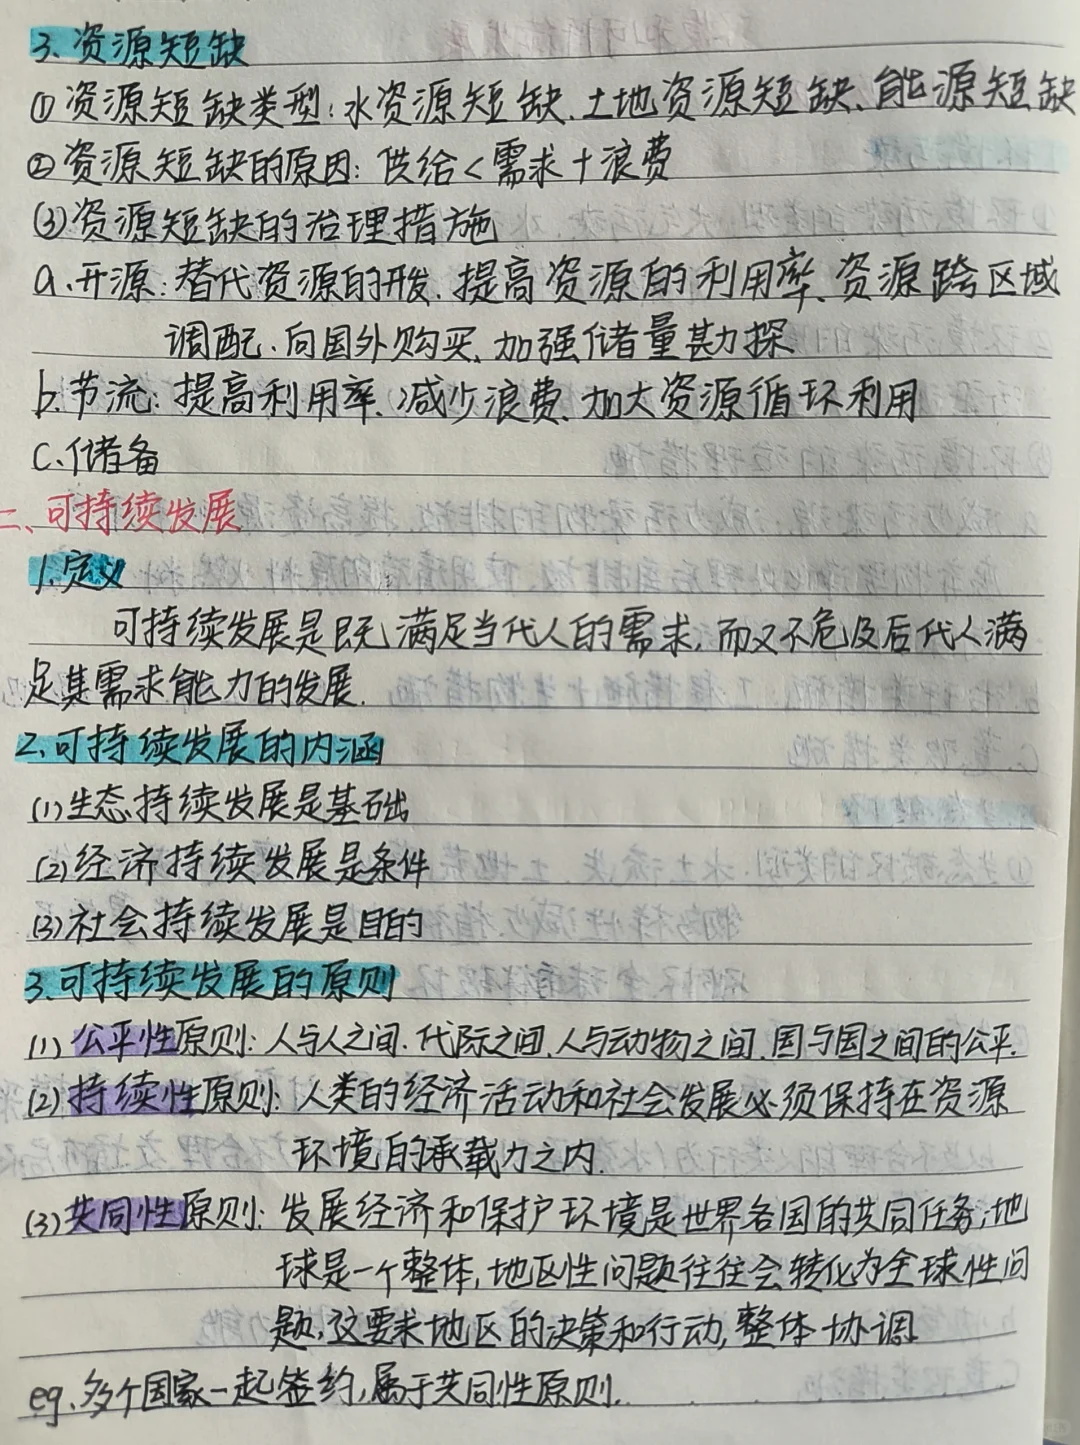 3.资源短缺
①资源短缺类型:水资源短缺、土地资源短缺、能源短缺
②资源短缺的原因:供给<需求+浪费
(3)资源短缺的治理措施
a.开源:替代资源的开发、提高资源的利用率、资源跨区域
调配、向国外购买、加强储量勘探
b.节流:提高利用率、减少浪费、加大资源循环利用
C、储备
二、可持续发展
1.定义
可持续发展是既满足当代人的需求,而又不危及后代人满
足其需求能力的发展.
2.可持续发展的内涵
(1)生态持续发展是基础
(2)经济持续发展是条件
(3)社会持续发展是目的
3.可持续发展的原则
(1)公平性原则:人与人之间、代际之间、人与动物之间、国与国之间的公平.
(2)持续性原则:人类的经济活动和社会发展必须保持在资源
环境的承载力之内.
(3)共同性原则:发展经济和保护环境是世界各国的共同任务;地
球是一个整体,地区性问题往往会转化为全球性问
题,这要求地区的决策和行动,整体协调
eg.多个国家一起签约,属于共同性原则.